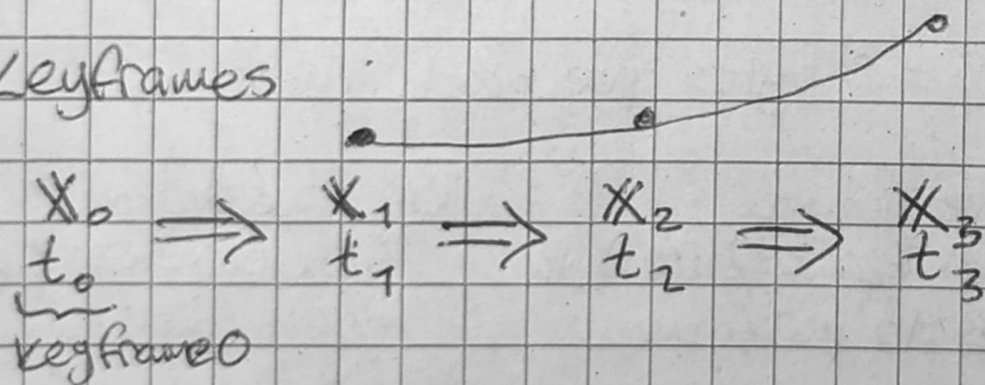 Keyframes
X₀ ⇒ X₁ ⇒ X₂ ⇒ X₃
t₀ t₁ t₂ t₃
keyframe0